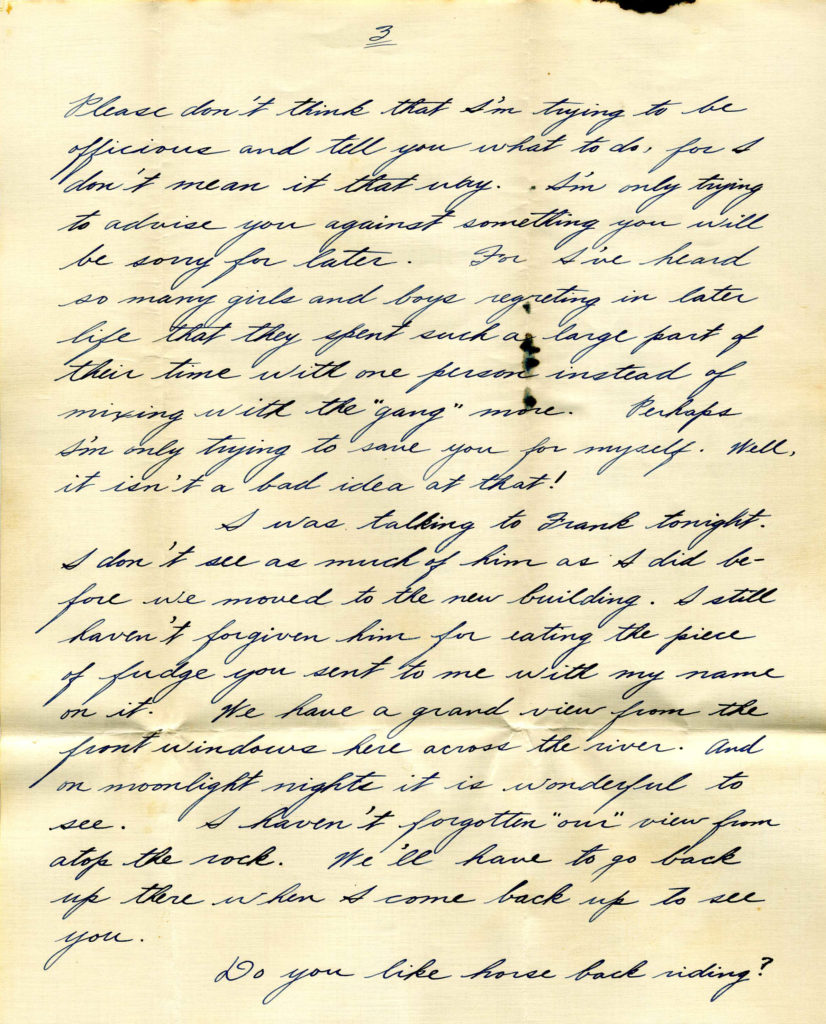 3
Please don't think that I'm trying to be
officious and tell you what to do, for I
don't mean it that way. I'm only trying
to advise you against something you will
be sorry for later. For I've heard
so many girls and boys regreting in later
life that they spent such a large part of
their time with one person instead of
mixing with the "gang" more. Perhaps
I'm only trying to save you for myself. Well,
it isn't a bad idea at that!
I was talking to Frank tonight.
I don't see as much of him as I did be-
fore we moved to the new building. I still
haven't forgiven him for eating the piece
of fudge you sent to me with my name
on it. We have a grand view from the
front windows here across the river. And
on moonlight nights it is wonderful to
see. I haven't forgotten "our" view from
atop the rock. We'll have to go back
up there when I come back up to see
you.
Do you like horse back riding?